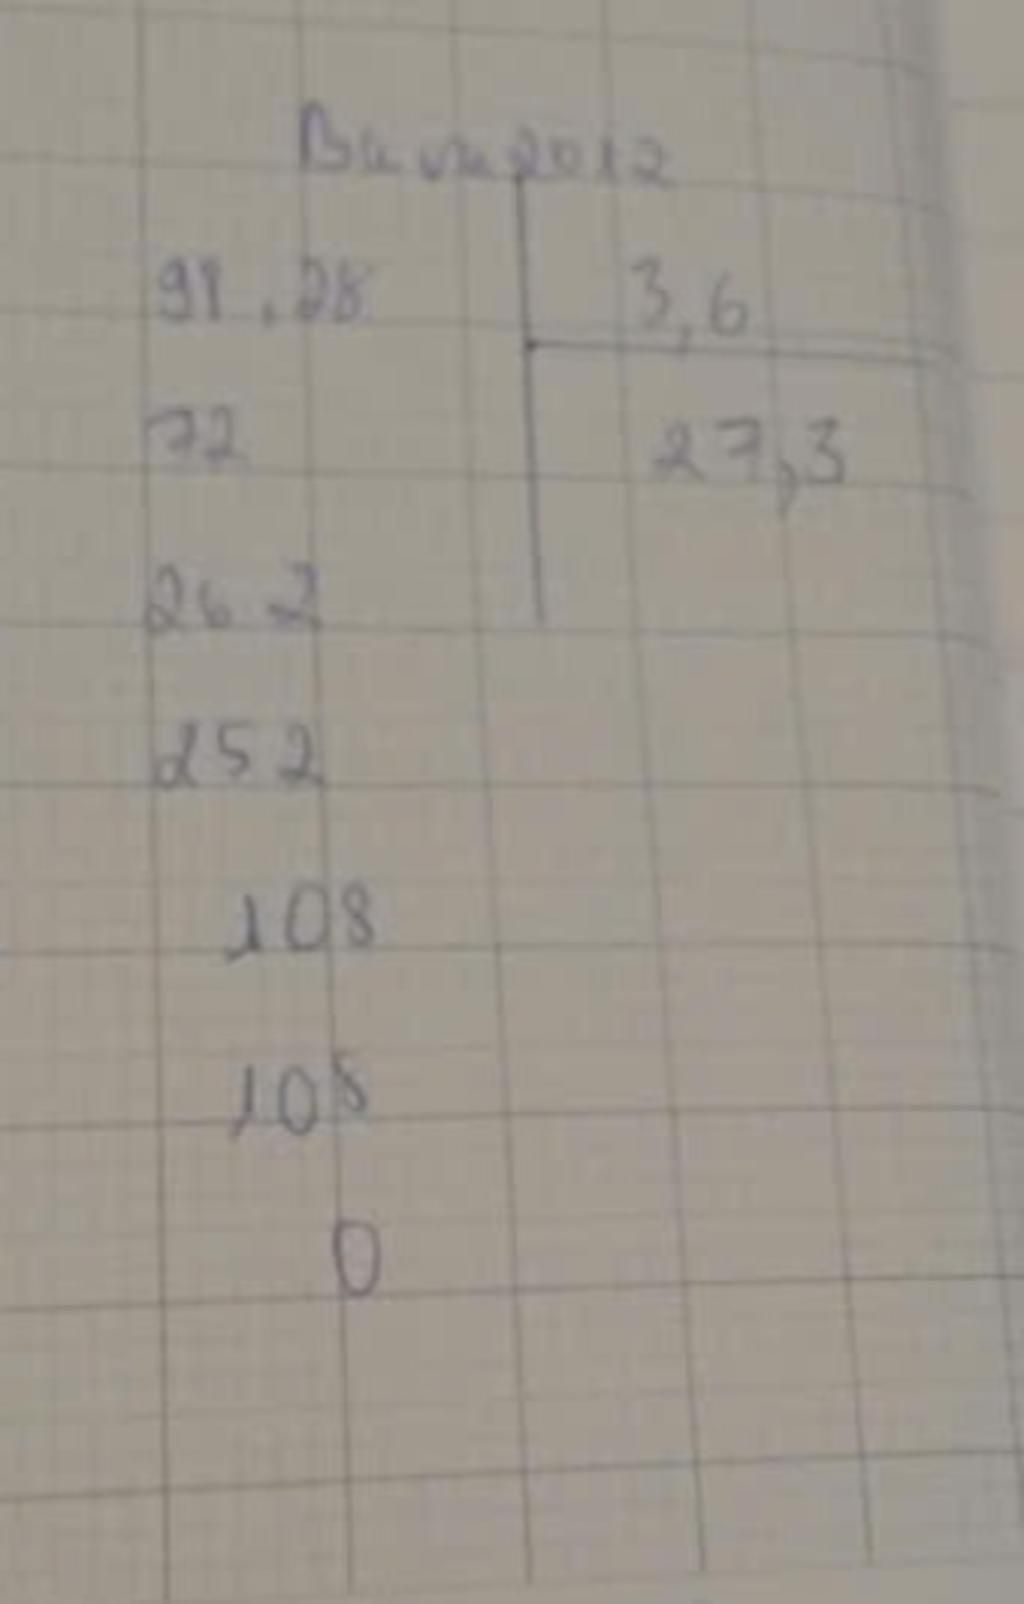 2012
98,28 3,6
72 27,3
262
252
108
108
0